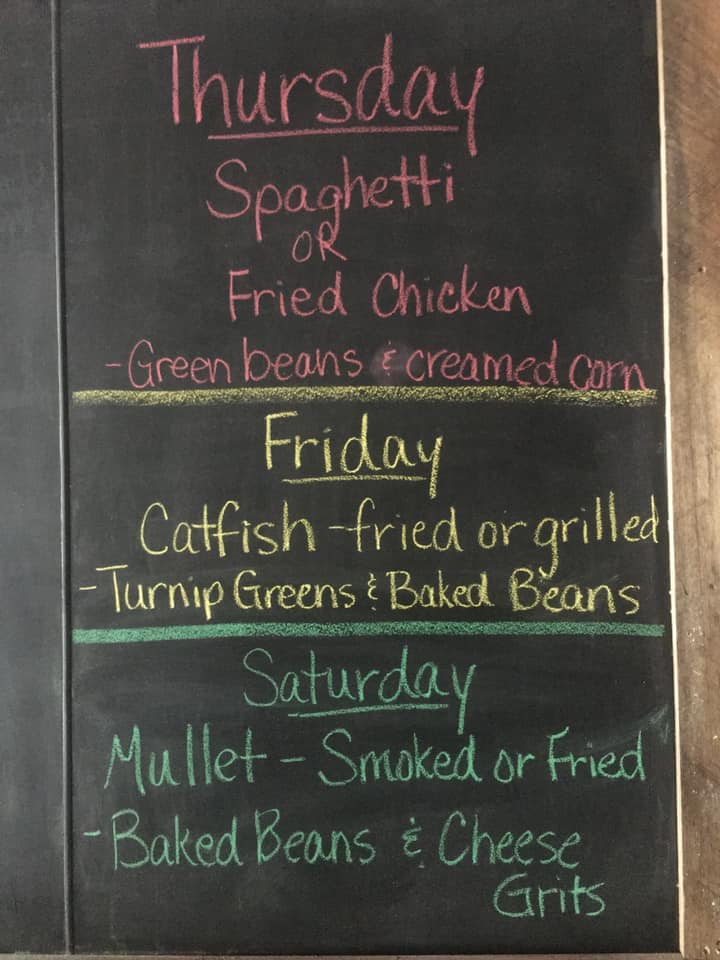 Thursday
Spaghetti
OR
Fried Chicken
-Green beans & creamed corn
Friday
Catfish -fried or grilled
-Turnip Greens & Baked Beans
Saturday
Mullet - Smoked or Fried
-Baked Beans & Cheese
Grits